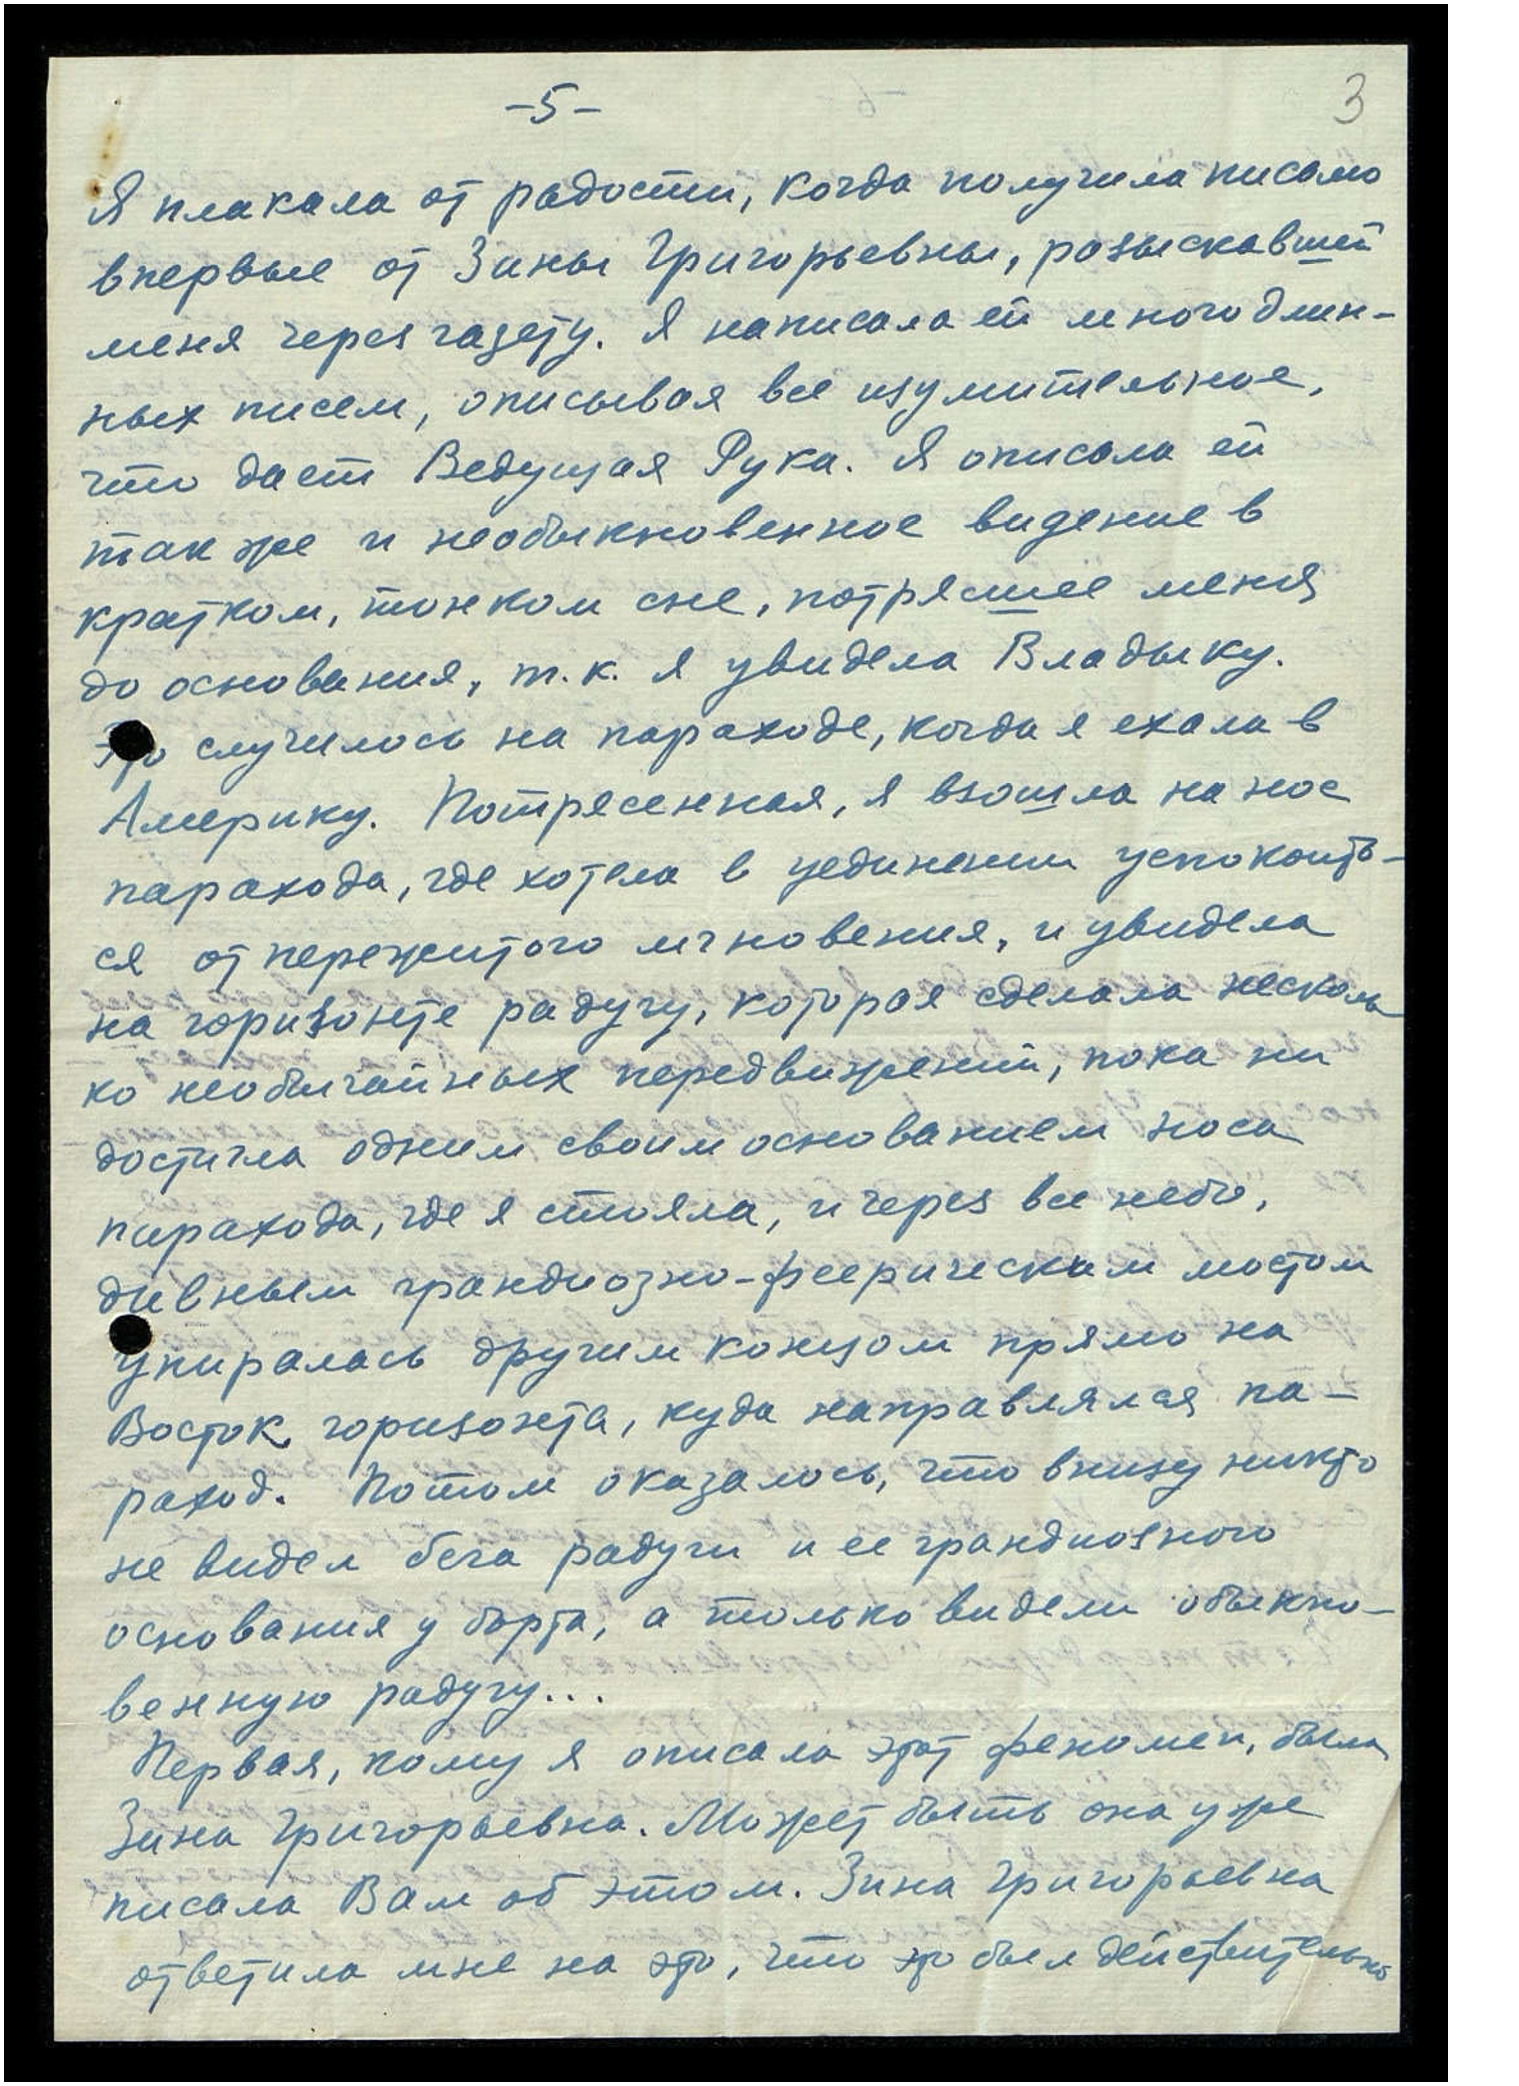 -5-
3
Я плакала от радости, когда получила письмо
впервые от Зины Григорьевны, розыскавшей
меня через газету. Я написала ей много длин-
ных писем, описывая все изумительное,
что дает Ведущая Рука. Я описала ей
так же и необыкновенное видение в
кратком, тонком сне, потрясшее меня
до основания, т.к. я увидела Владыку.
Это случилось на параходе, когда я ехала в
Америку. Потрясенная, я взошла на нос
парахода, где хотела в уединении успокоить-
ся от пережитого мгновения, и увидела
на горизонте радугу, которая сделала несколь
ко необычайных передвижений, пока ни
достигла одним своим основанием носа
парахода, где я стояла, и через все небо,
дивным грандиозно-феерическим мостом
упиралась другим концом прямо на
Восток горизонта, куда направлялся па-
раход. Потом оказалось, что внизу никто
не видел бега радуги и ее грандиозного
основания у борта, а только видели обыкно-
венную радугу...
Первая, кому я описала этот феномен, была
Зина Григорьевна. Может быть она уже
писала Вам об этом. Зина Григорьевна
ответила мне на это, что это был действительно